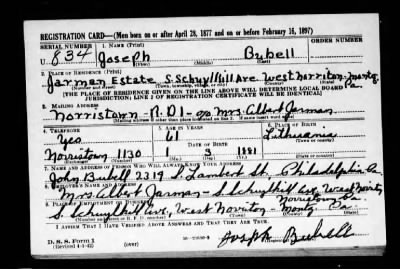 REGISTRATION CARD—(Men born on or after April 28, 1877 and on or before February 16, 1897)
SERIAL NUMBER 1. NAME (Print) ORDER NUMBER
U 834 Joseph Bubell
(First) (Middle) (Last)
2. PLACE OF RESIDENCE (Print)
Jarman Estate S. Schuylkill Ave West Norriton Montg. Pa.
(Number and street) (Town, township, village, or city) (County) (State)
[THE PLACE OF RESIDENCE GIVEN ON THE LINE ABOVE WILL DETERMINE LOCAL BOARD
JURISDICTION; LINE 2 OF REGISTRATION CERTIFICATE WILL BE IDENTICAL]
3. MAILING ADDRESS
Norristown - R.D. 1 c/o Mrs Albert Jarman
[Mailing address if other than place indicated on line 2. If same insert word same]
4. TELEPHONE 5. AGE IN YEARS 6. PLACE OF BIRTH
Yes 61 Lithuania
DATE OF BIRTH
Norristown 1130 1 3 1881
7. NAME AND ADDRESS OF PERSON WHO WILL ALWAYS KNOW YOUR ADDRESS
John Bubell 2319 S. Lambert St. Philadelphia Pa.
8. EMPLOYER'S NAME AND ADDRESS
Mrs. Albert Jarman - S. Schuylkill Ave, West Norriton
Norristown Pa.
9. PLACE OF EMPLOYMENT OR BUSINESS
S. Schuylkill Ave, West Norriton Montg. Pa.
I AFFIRM THAT I HAVE VERIFIED ABOVE ANSWERS AND THAT THEY ARE TRUE.
D. S. S. Form 1
(Revised 4-1-42) (over)
Joseph Bubell